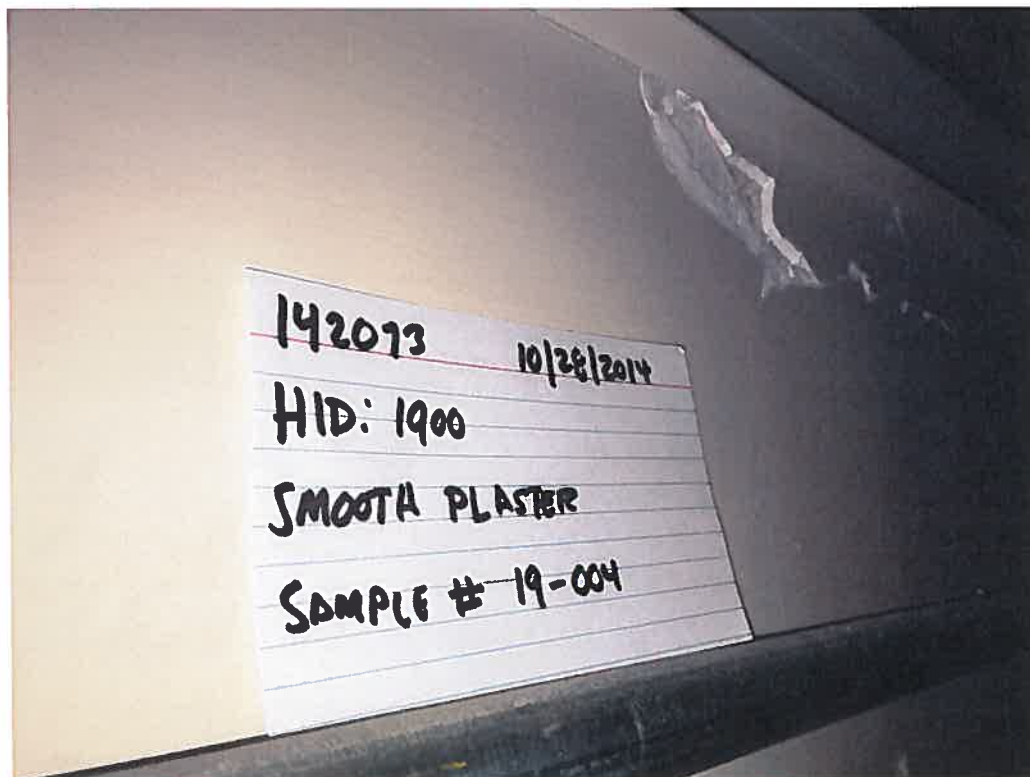 142073 10/28/2014
HID: 1900
SMOOTH PLASTER
SAMPLE # 19-004